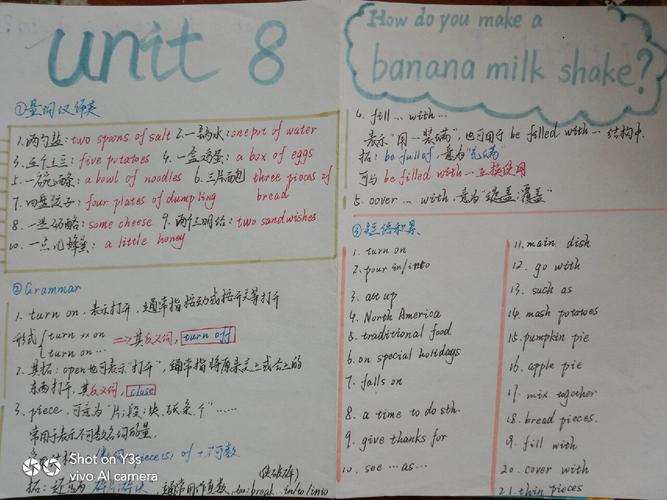 unit 8
①量词仅师类
1.两勺盐:two spoons of salt 2.一壶水:one pot of water
3.五个土豆:five potatoes 4.一盒鸡蛋:a box of eggs
5.一碗面条:a bowl of noodles 6.三片面包 three pieces of
bread
7.四盘饺子:four plates of dumpling
8.一些奶酪:some cheese 9.两个三明治:two sandwishes
10.一点儿蜂蜜:a little honey
②Grammar
1. turn on.表示打开,通常指按动或按开关等打开
形式 turn xx on
turn on… ⇒其反义词,turn off
2.其拓:open也可表示"打开",通常指将原来关上或合上的
东西打开,其反义词,close
3. piece,可意为"片;段;块、张、条个"……
常用于表示不可数名词的量,
piece(s) of +不可数
拓:
How do you make a
banana milk shake?
4. fill … with …
表示"用…装满",也可用于 be filled with…结构中.
拓:be full of,意为"充满"
可与 be filled with…互换使用
5. cover … with,意为"覆盖"
③短语积累
1. turn on
2. pour in/into
3. cut up
4. North America
5. traditional food
6. on special holidays
7. falls on
8. a time to do sth.
9. give thanks for
10. see …as…
11. main dish
12. go with
13. such as
14. mash potatoes
15. pumpkin pie
16. apple pie
17. mix together
18. bread pieces.
19. fill with
20. cover with
21. thin pieces
Shot on Y3s
vivo AI camera